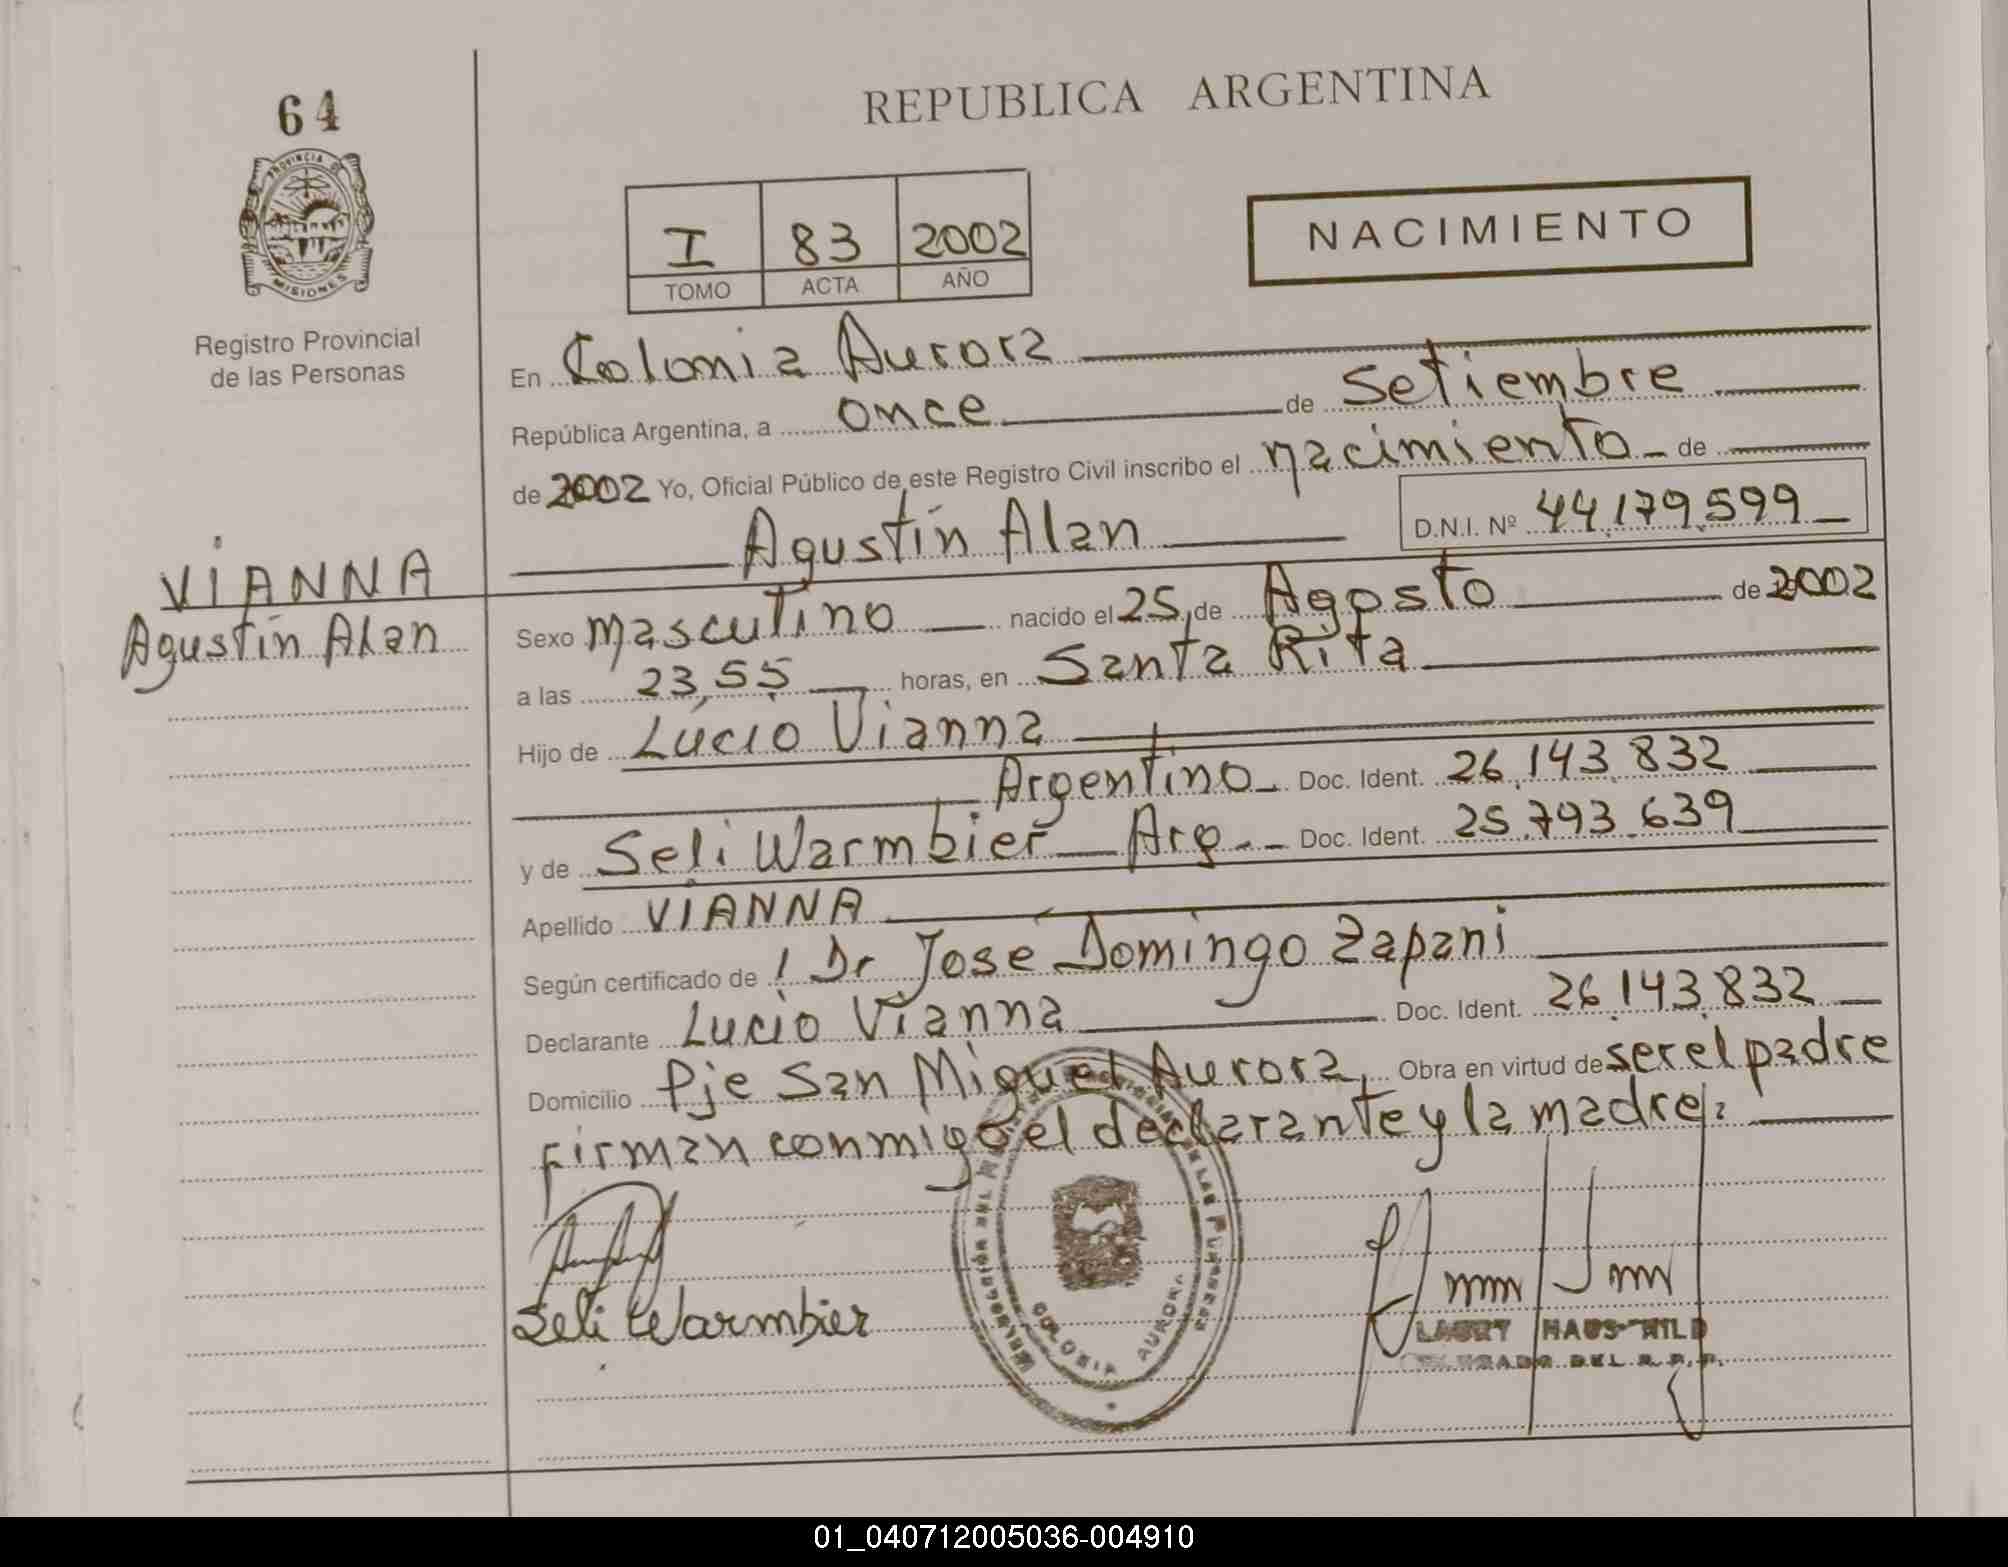 64
PROVINCIA DE
MISIONES
Registro Provincial
de las Personas
VIANNA
Agustín Alan
REPUBLICA ARGENTINA
I 83 2002
TOMO ACTA AÑO
NACIMIENTO
En Colonia Aurora
República Argentina, a once de Setiembre
de 2002 Yo, Oficial Público de este Registro Civil inscribo el nacimiento de
Agustín Alan D.N.I. Nº 44.179.599
Sexo masculino nacido el 25 de Agosto de 2002
a las 23,55 horas, en Santa Rita
Hijo de Lucio Vianna
Argentino Doc. Ident. 26.143.832
y de Seli Warmbier Arg. Doc. Ident. 25.793.639
Apellido VIANNA
Según certificado de : Dr José Domingo Zapani
Declarante Lucio Vianna Doc. Ident. 26.143.832
Domicilio Pje San Miguel Aurora, Obra en virtud de ser el padre
firman conmigo el declarante y la madre:
Seli Warmbier
COLONIA AURORA
DEL R.P.P.
01_040712005036-004910